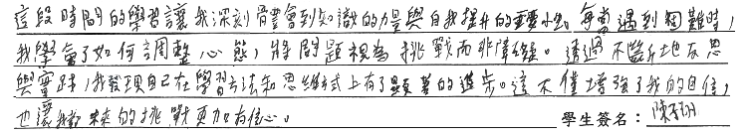 這段時間的學習讓我深刻體會到知識的力量與自我提升的重要性。每當遇到困難時,
我學會了如何調整心態,將問題視為挑戰而非障礙。透過不斷地反思
與實踐,我發現自己在學習方法和思維方式上有了顯著的進步。這不僅增強了我的自信,
也讓我對未來的挑戰更加有信心。 學生簽名:陳